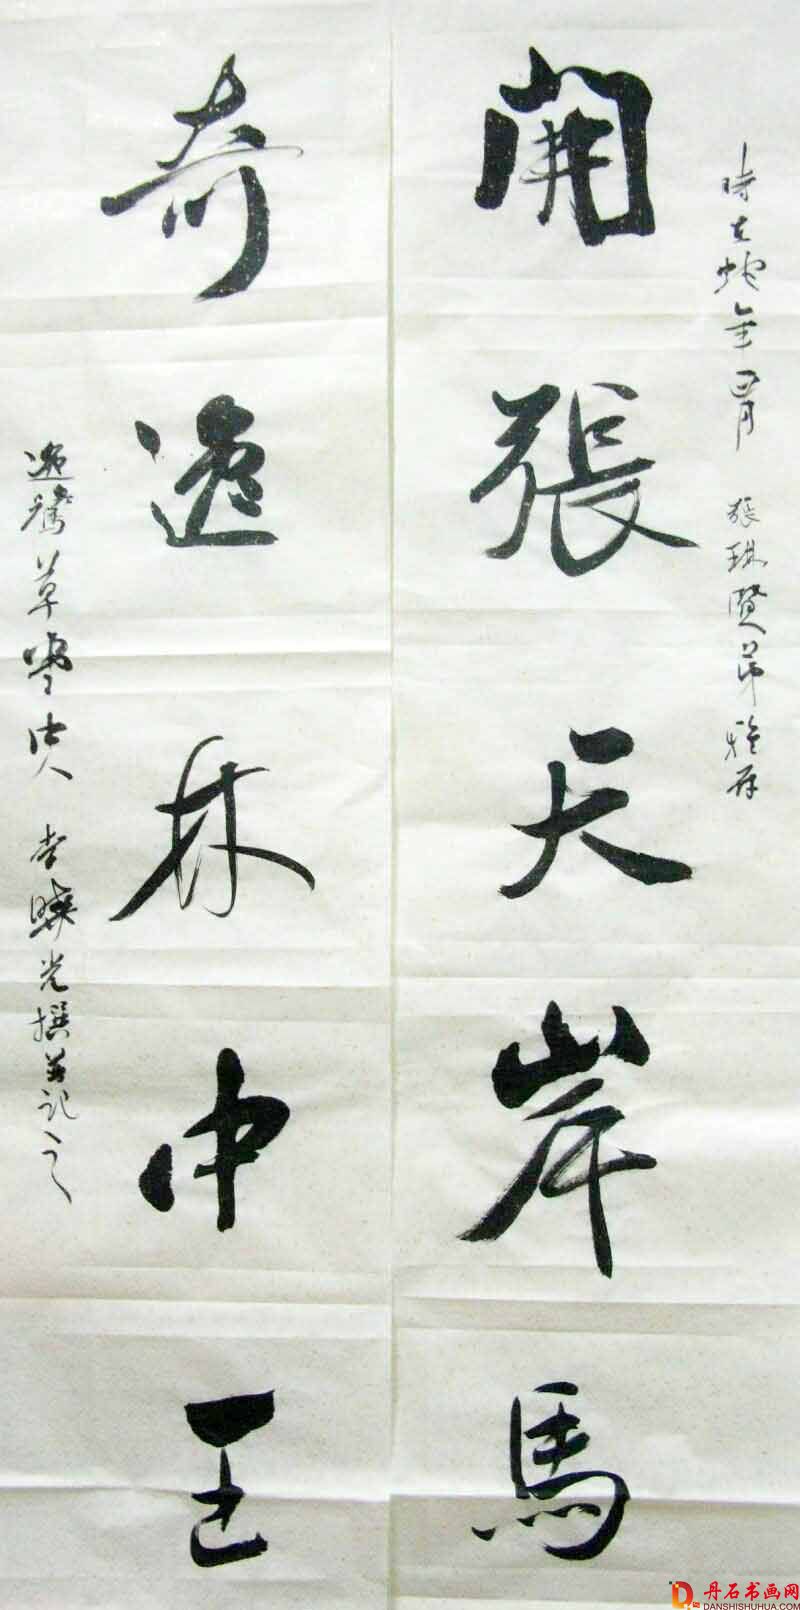 時在蛇年四月 張琪賢弟雅存
開張天岸馬
奇逸林中王
逸鶩草堂中人 李曉光撰並記之
丹石书画网
DANSHISHUHUA.COM